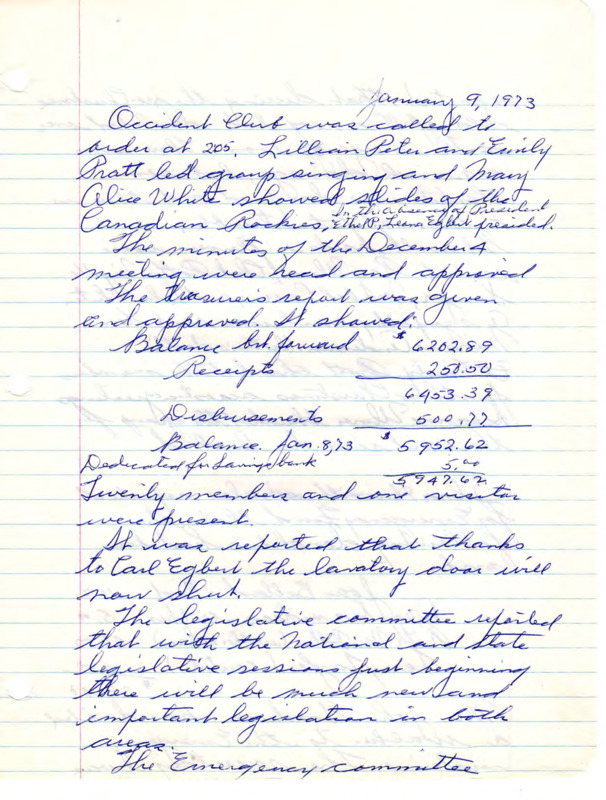 January 9, 1973
Occident Club was called to
order at 205. Lillian Peter and Emily
Pratt led group singing and Mary
Alice White showed slides of the
In the absence of President
Canadian Rockies, Ethel P, Leona Egbert presided.
The minutes of the December 4
meeting were read and approved
The treasurer's report was given
and approved. It showed:
Balance brt. forward $6202.89
Receipts 250.50
6453.39
Disbursements 500.77
Balance. Jan. 8, 73 $5952.62
Dedicated for Savings bank 5.00
5947.62
Twenty members and one visitor
were present.
It was reported that thanks
to Carl Egbert the lavatory door will
now shut.
The legislative committee reported
that with the National and State
legislative sessions just beginning
there will be much new and
important legislation in both
areas.
The Emergency committee